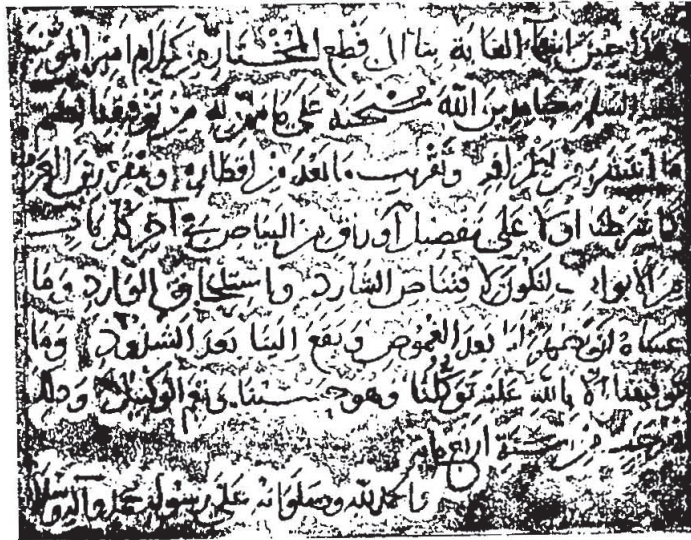 وهذا حين انتهآ الغاية بنا الى قطع المختار من كلام امير المؤمنين
السلم حامدين الله سبحنه على ما من به من توفيقنا لضم
ما انتشر من اطرافه وتقريب ما بعد من اقطاره وتقرر العزم
كما شرطنا اولا على تفضيل اوراق من البياض في آخر كل باب
من الابواب لتكون لاقتناص الشارد واستلحاق الوارد وما
عساه ان يظهر لنا بعد الغموض ويقع الينا بعد الشذوذ وما
توفيقنا الا بالله عليه توكلنا وهو حسبنا ونعم الوكيل وذلك
رجب من سنة اربع مائة
والحمد لله وصلواته على رسوله محمد وآله وسلا